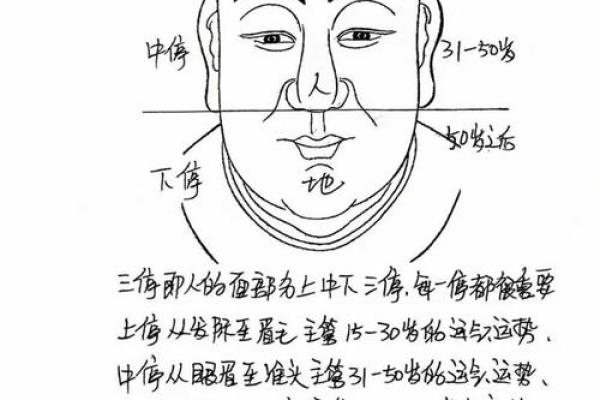 中停
31-50岁
人
50岁之后
下停
地
三停即人的面部分上中下三停,每一停都很重要
上停从发际至眉毛 主管15-30岁的运气运势、
中停从眼眉至准头主管31-50岁的运气运势、